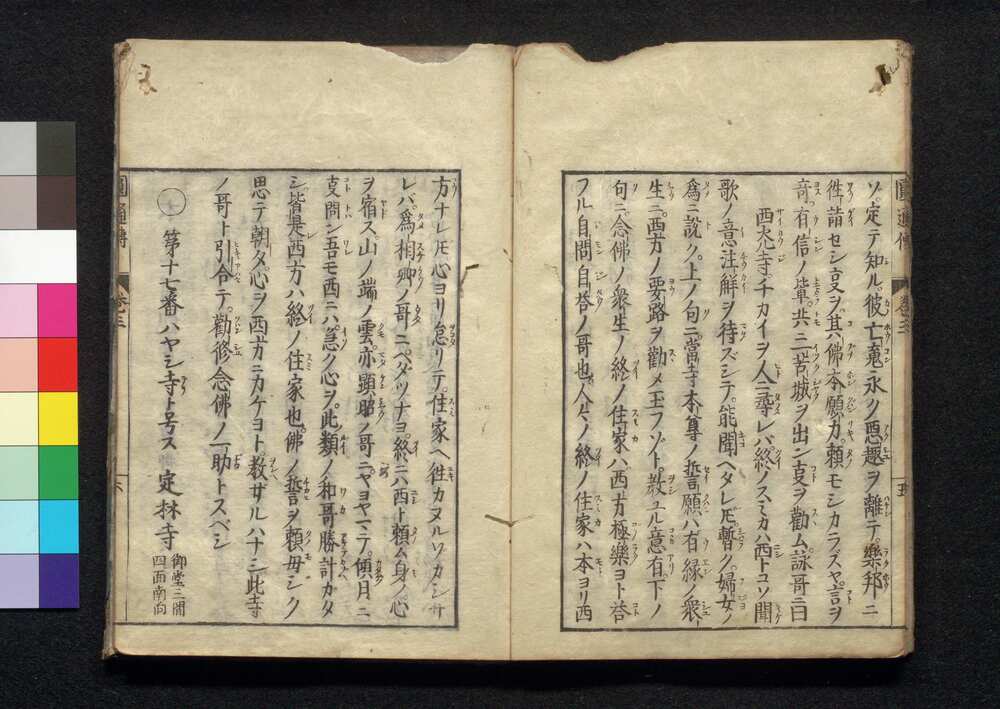 ゾ定テ知ル彼亡魂永ク惡趣ヲ離テ樂邦ニ
徃詣セシ叓ヲ其佛本願力頼モシカラズヤ言ヲ
竒有信ノ輩共ニ苦域ヲ出ン叓ヲ勸ム詠哥ニ曰
西光寺チカイヲ人ニ尋レバ終ノスミカハ西トコソ聞
歌ノ意注解ヲ待ズシテ能聞ヘタレ𪜈暫ク婦女ノ
爲ニ説ク上ノ句ニ當寺本尊ノ誓願ハ有縁ノ衆
生ニ西方ノ要路ヲ勸メ玉フゾト教ユル意有下ノ
句ニ念佛ノ衆生ノ終ノ住家ハ西方極樂ヨト荅
フル自問自荅ノ哥也人々ノ終ノ住家ハ本ヨリ西
方ナレ𪜈心ヨリ怠リテ住家ヘ徃カヌルワカシサ
レバ爲相卿ノ哥ニヘダツナヨ終ニハ西ト頼ム身ノ心
ヲ宿ス山ノ端ノ雲亦顕昭ノ哥ニヤヨヤマテ傾月ニ
叓問ン吾モ西ニハ急ク心ヲ此類ノ和哥勝計カタ
シ皆是西方ハ終ノ住家也佛ノ誓ヲ頼毋シク
思テ朝夕心ヲ西方ニカケヨト教サルハナシ此寺
ノ哥ト引合テ勸修念佛ノ一助トスベシ
第十七番ハヤシ寺ト号ス 定林寺
御堂三間
四面南向
圓通傳
卷三
五
圓通傳
卷三
六